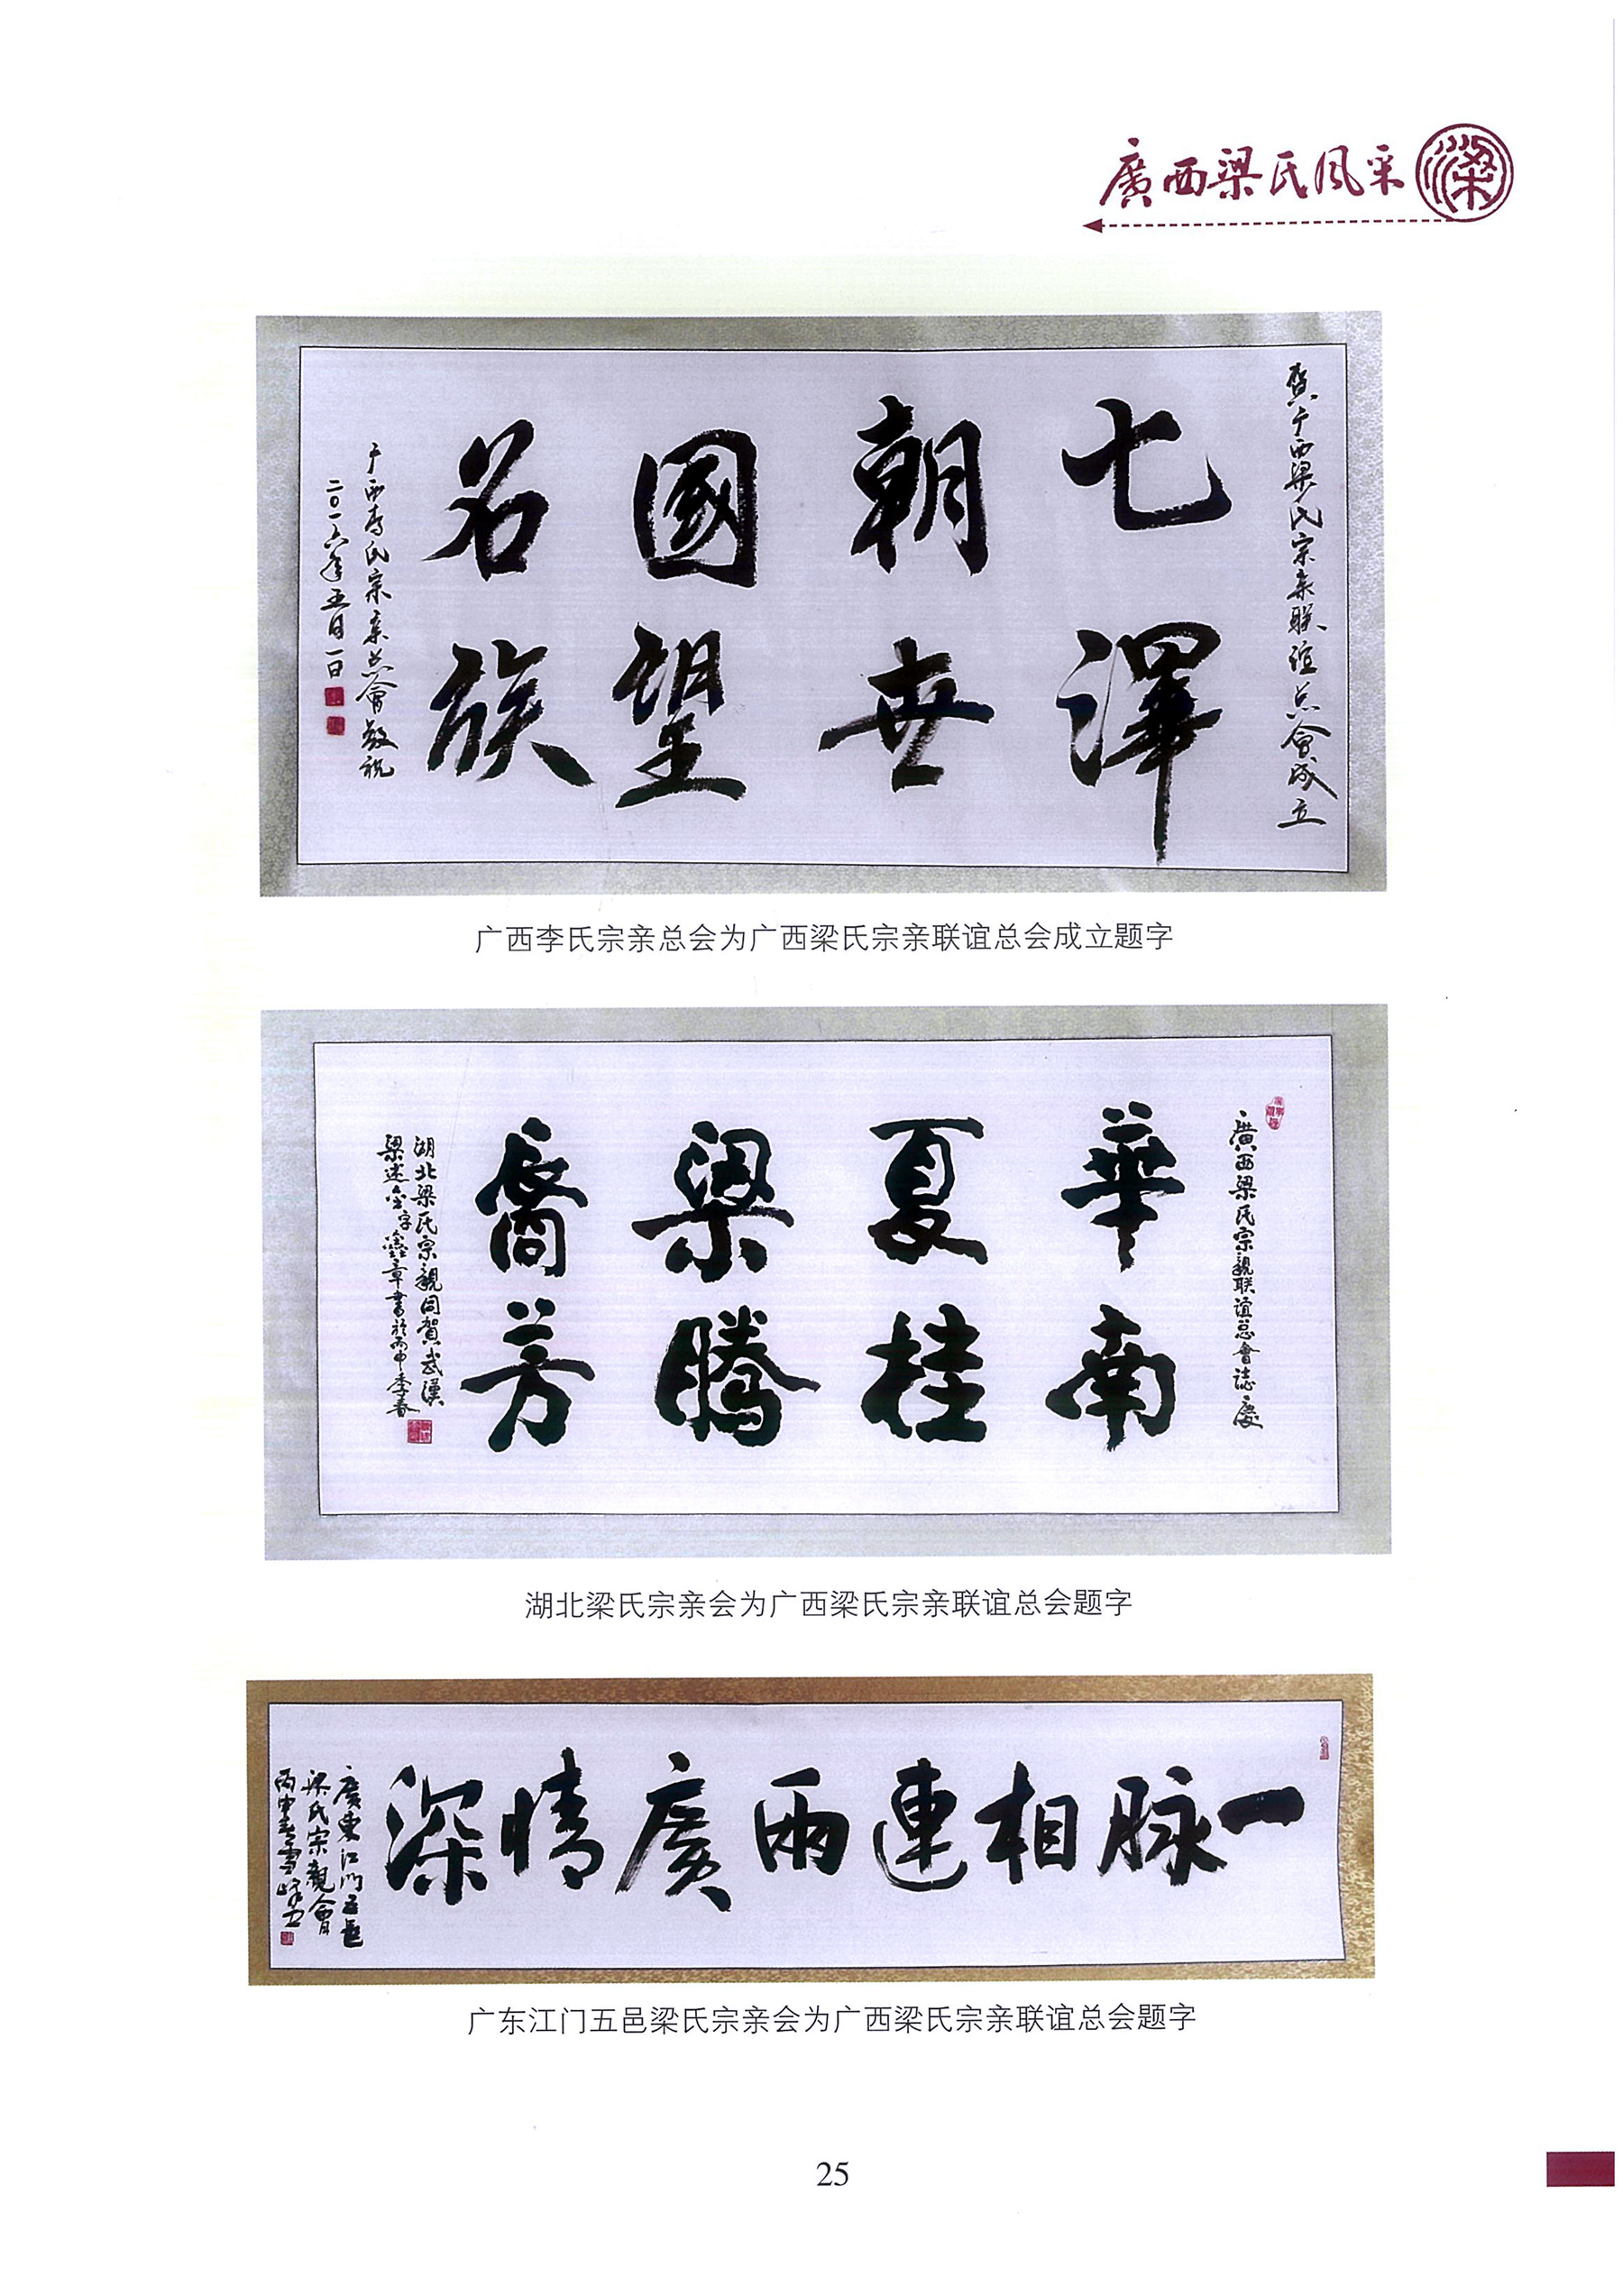 廣西梁氏風采
梁
賀广西梁氏宗亲联谊总會成立
七澤
朝世
國望
名族
广西李氏宗亲总會敬祝
二〇一六年五月一日
广西李氏宗亲总会为广西梁氏宗亲联谊总会成立题字
廣西梁氏宗親联谊总會誌慶
華南
夏桂
梁騰
裔芳
湖北梁氏宗親同賀武漢
梁述金字鑫章書於丙申季春
湖北梁氏宗亲会为广西梁氏宗亲联谊总会题字
一脉相連兩廣情深
廣東江门五邑
梁氏宗親會
丙申春雪峰书
广东江门五邑梁氏宗亲会为广西梁氏宗亲联谊总会题字
25